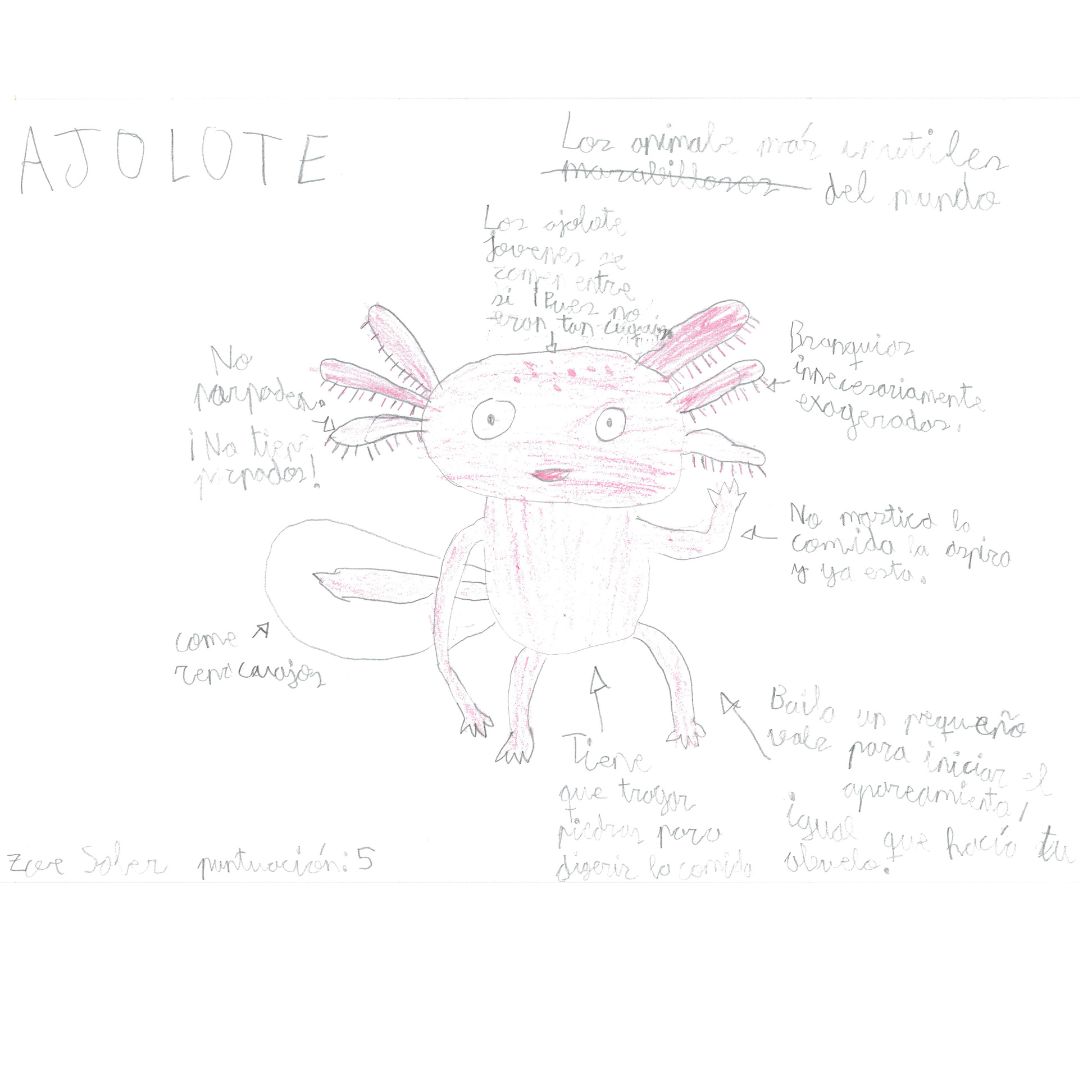 AJOLOTE
Los animals más inutiles
marabillosos del mundo
Los ajolote
Jovenes se
comen entre
si ¡Pues no
eran tan cuquis
No
parpadea.
¡No tien
parpados!
Branquias
innecesariamente
exageradas.
No mastica la
comida la aspira
y ya esta.
come
renacuajos
Tiene
que tragar
piedras para
digerir la comida
Baila un pequeño
vals para iniciar el
apareamiento,
igual que hacía tu
abuelo.
Zoe Soler puntuación: 5